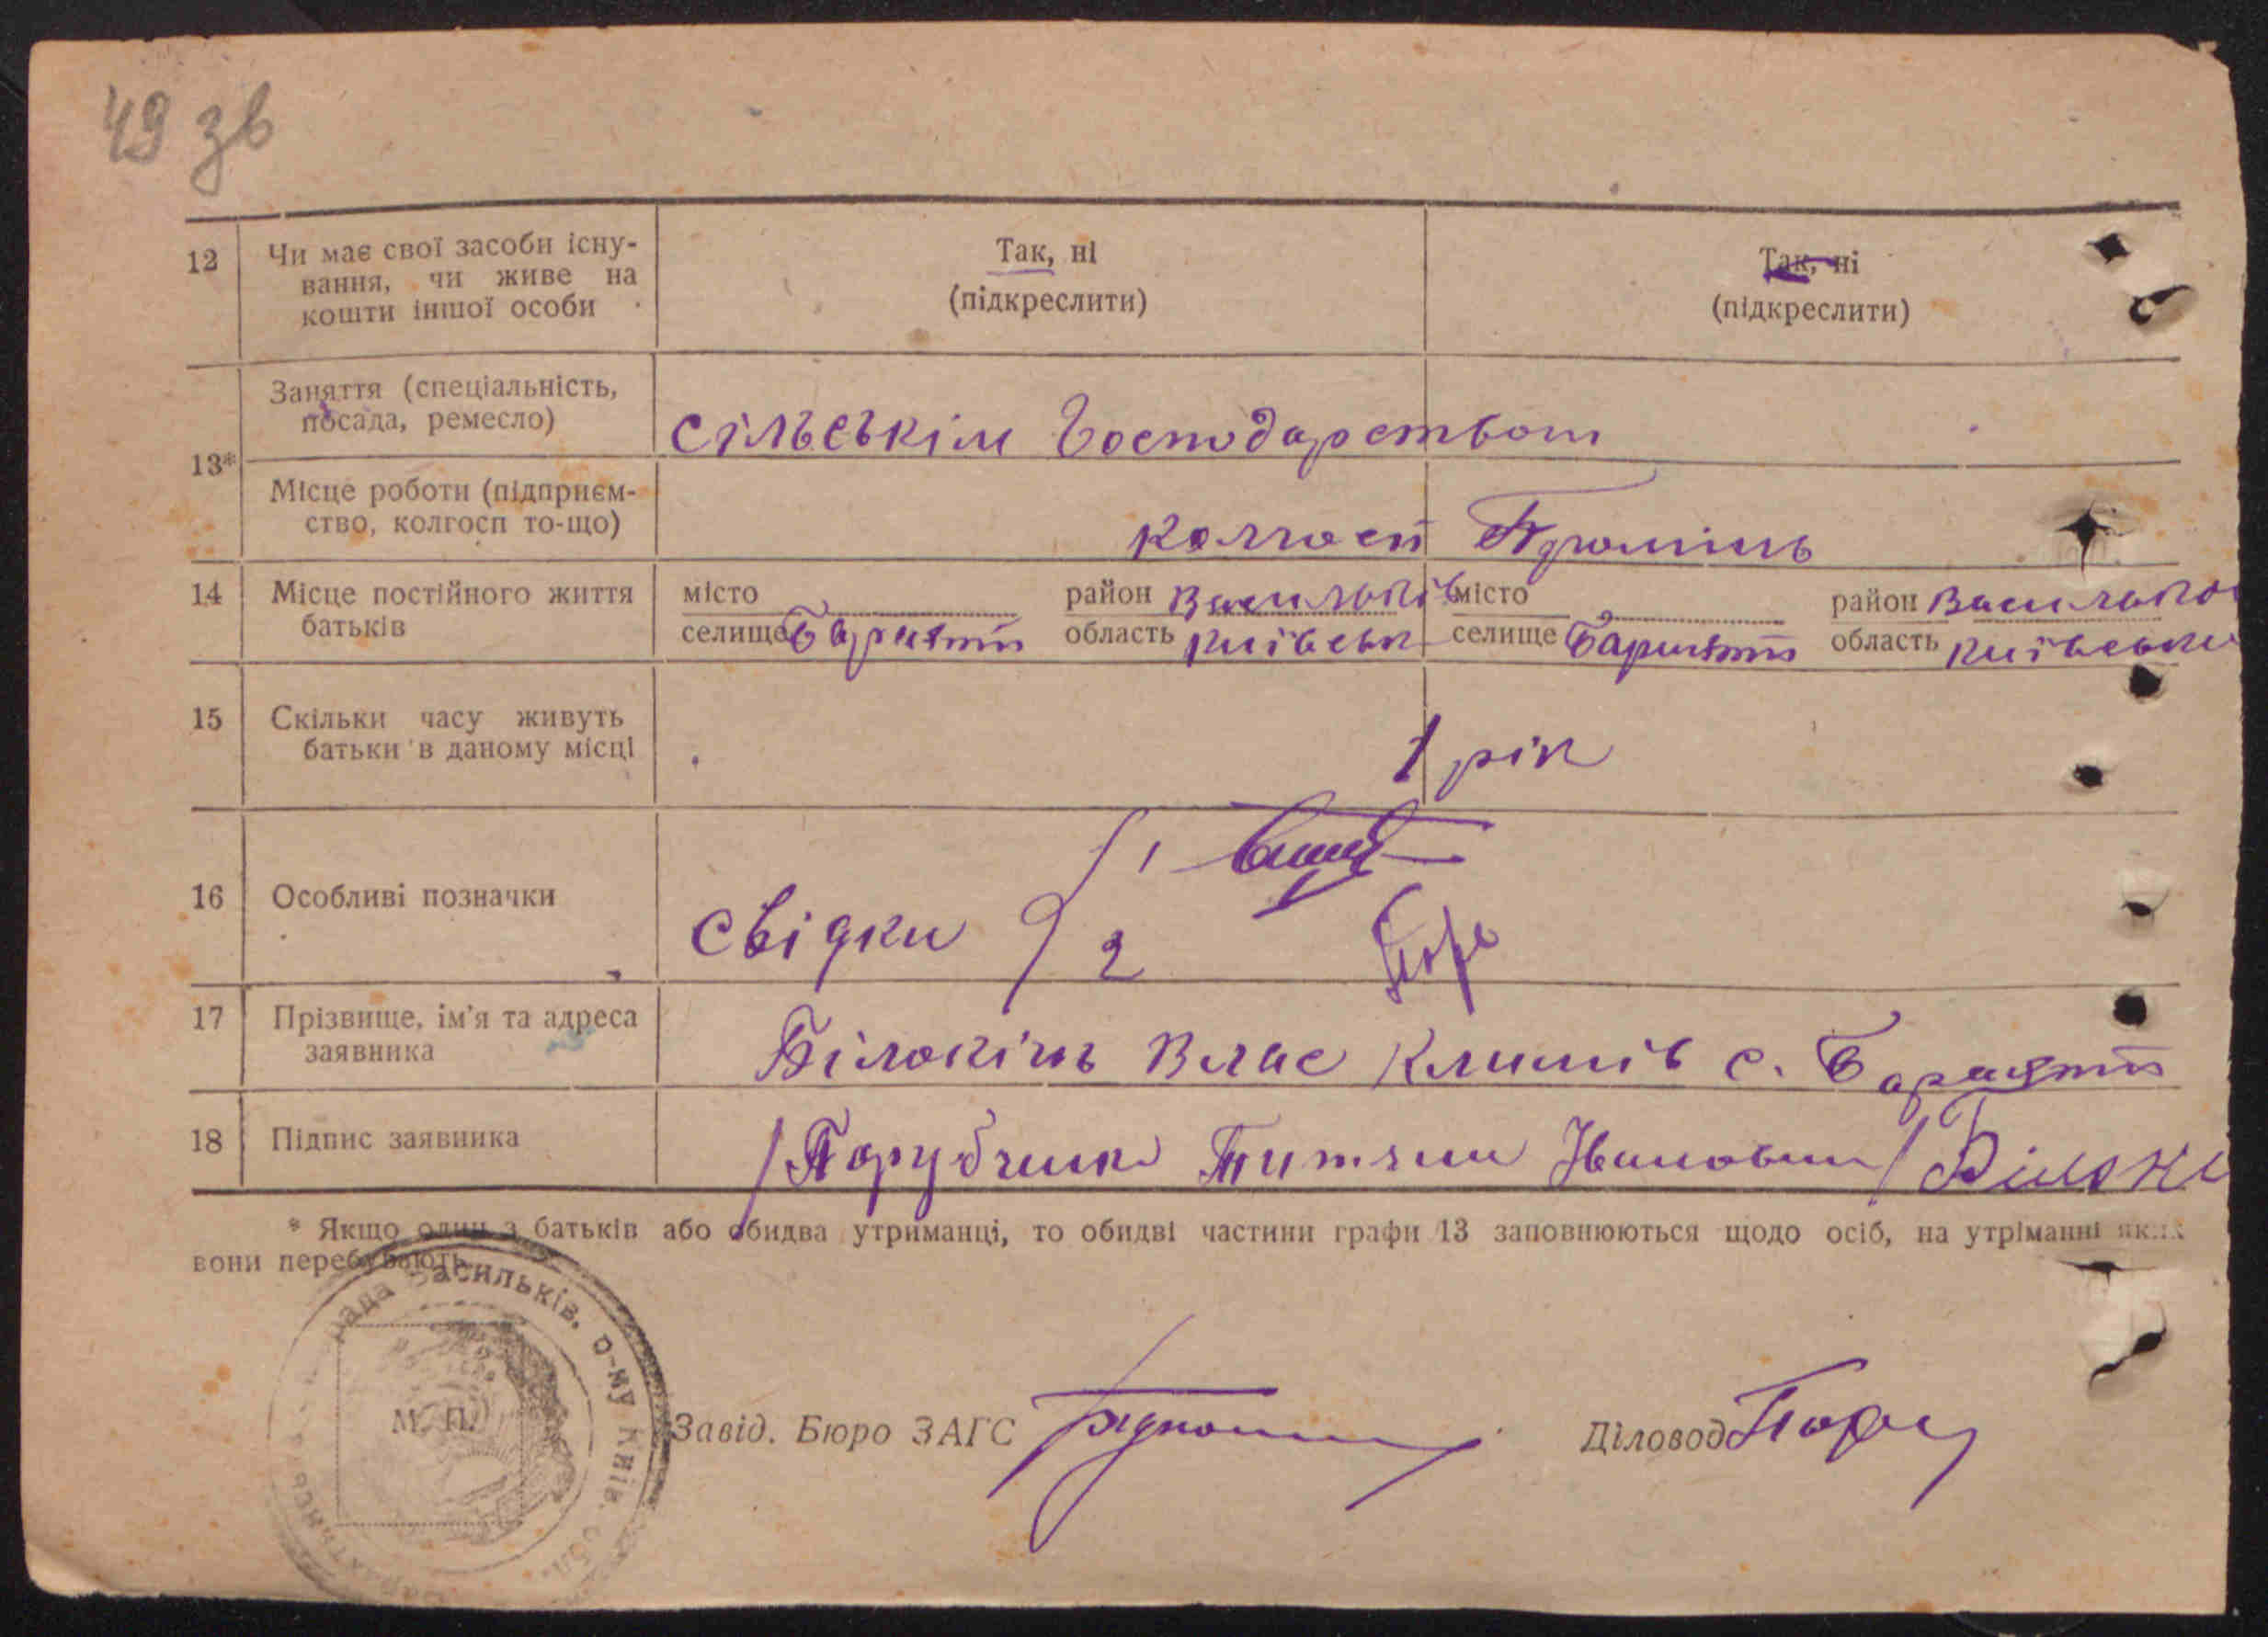 49 зв
12 Чи має свої засоби існу-
вання, чи живе на
кошти іншої особи
Так, ні
(підкреслити)
Так, ні
(підкреслити)
13*
Заняття (спеціальність,
посада, ремесло)
сільськім господарством
Місце роботи (підприєм-
ство, колгосп то-що)
колгосп Промінь
14 Місце постійного життя
батьків
місто район Васильків
селище Барахти область Київськ
місто район Василько
селище Барахти область Київськи
15 Скільки часу живуть
батьки в даному місці
1 рік
16 Особливі позначки
свідки 1
2
17 Прізвище, ім'я та адреса
заявника
Білокінь Влас Климів с. Барахти
18 Підпис заявника
/Порубчик Івanович/ Білокі
* Якщо один з батьків або обидва утриманці, то обидві частини графи 13 заповнюються щодо осіб, на утріманні яких
вони перебувають.
рада Васильків. р-ну Київ. обл.
М. П.
Завід. Бюро ЗАГС
Діловод